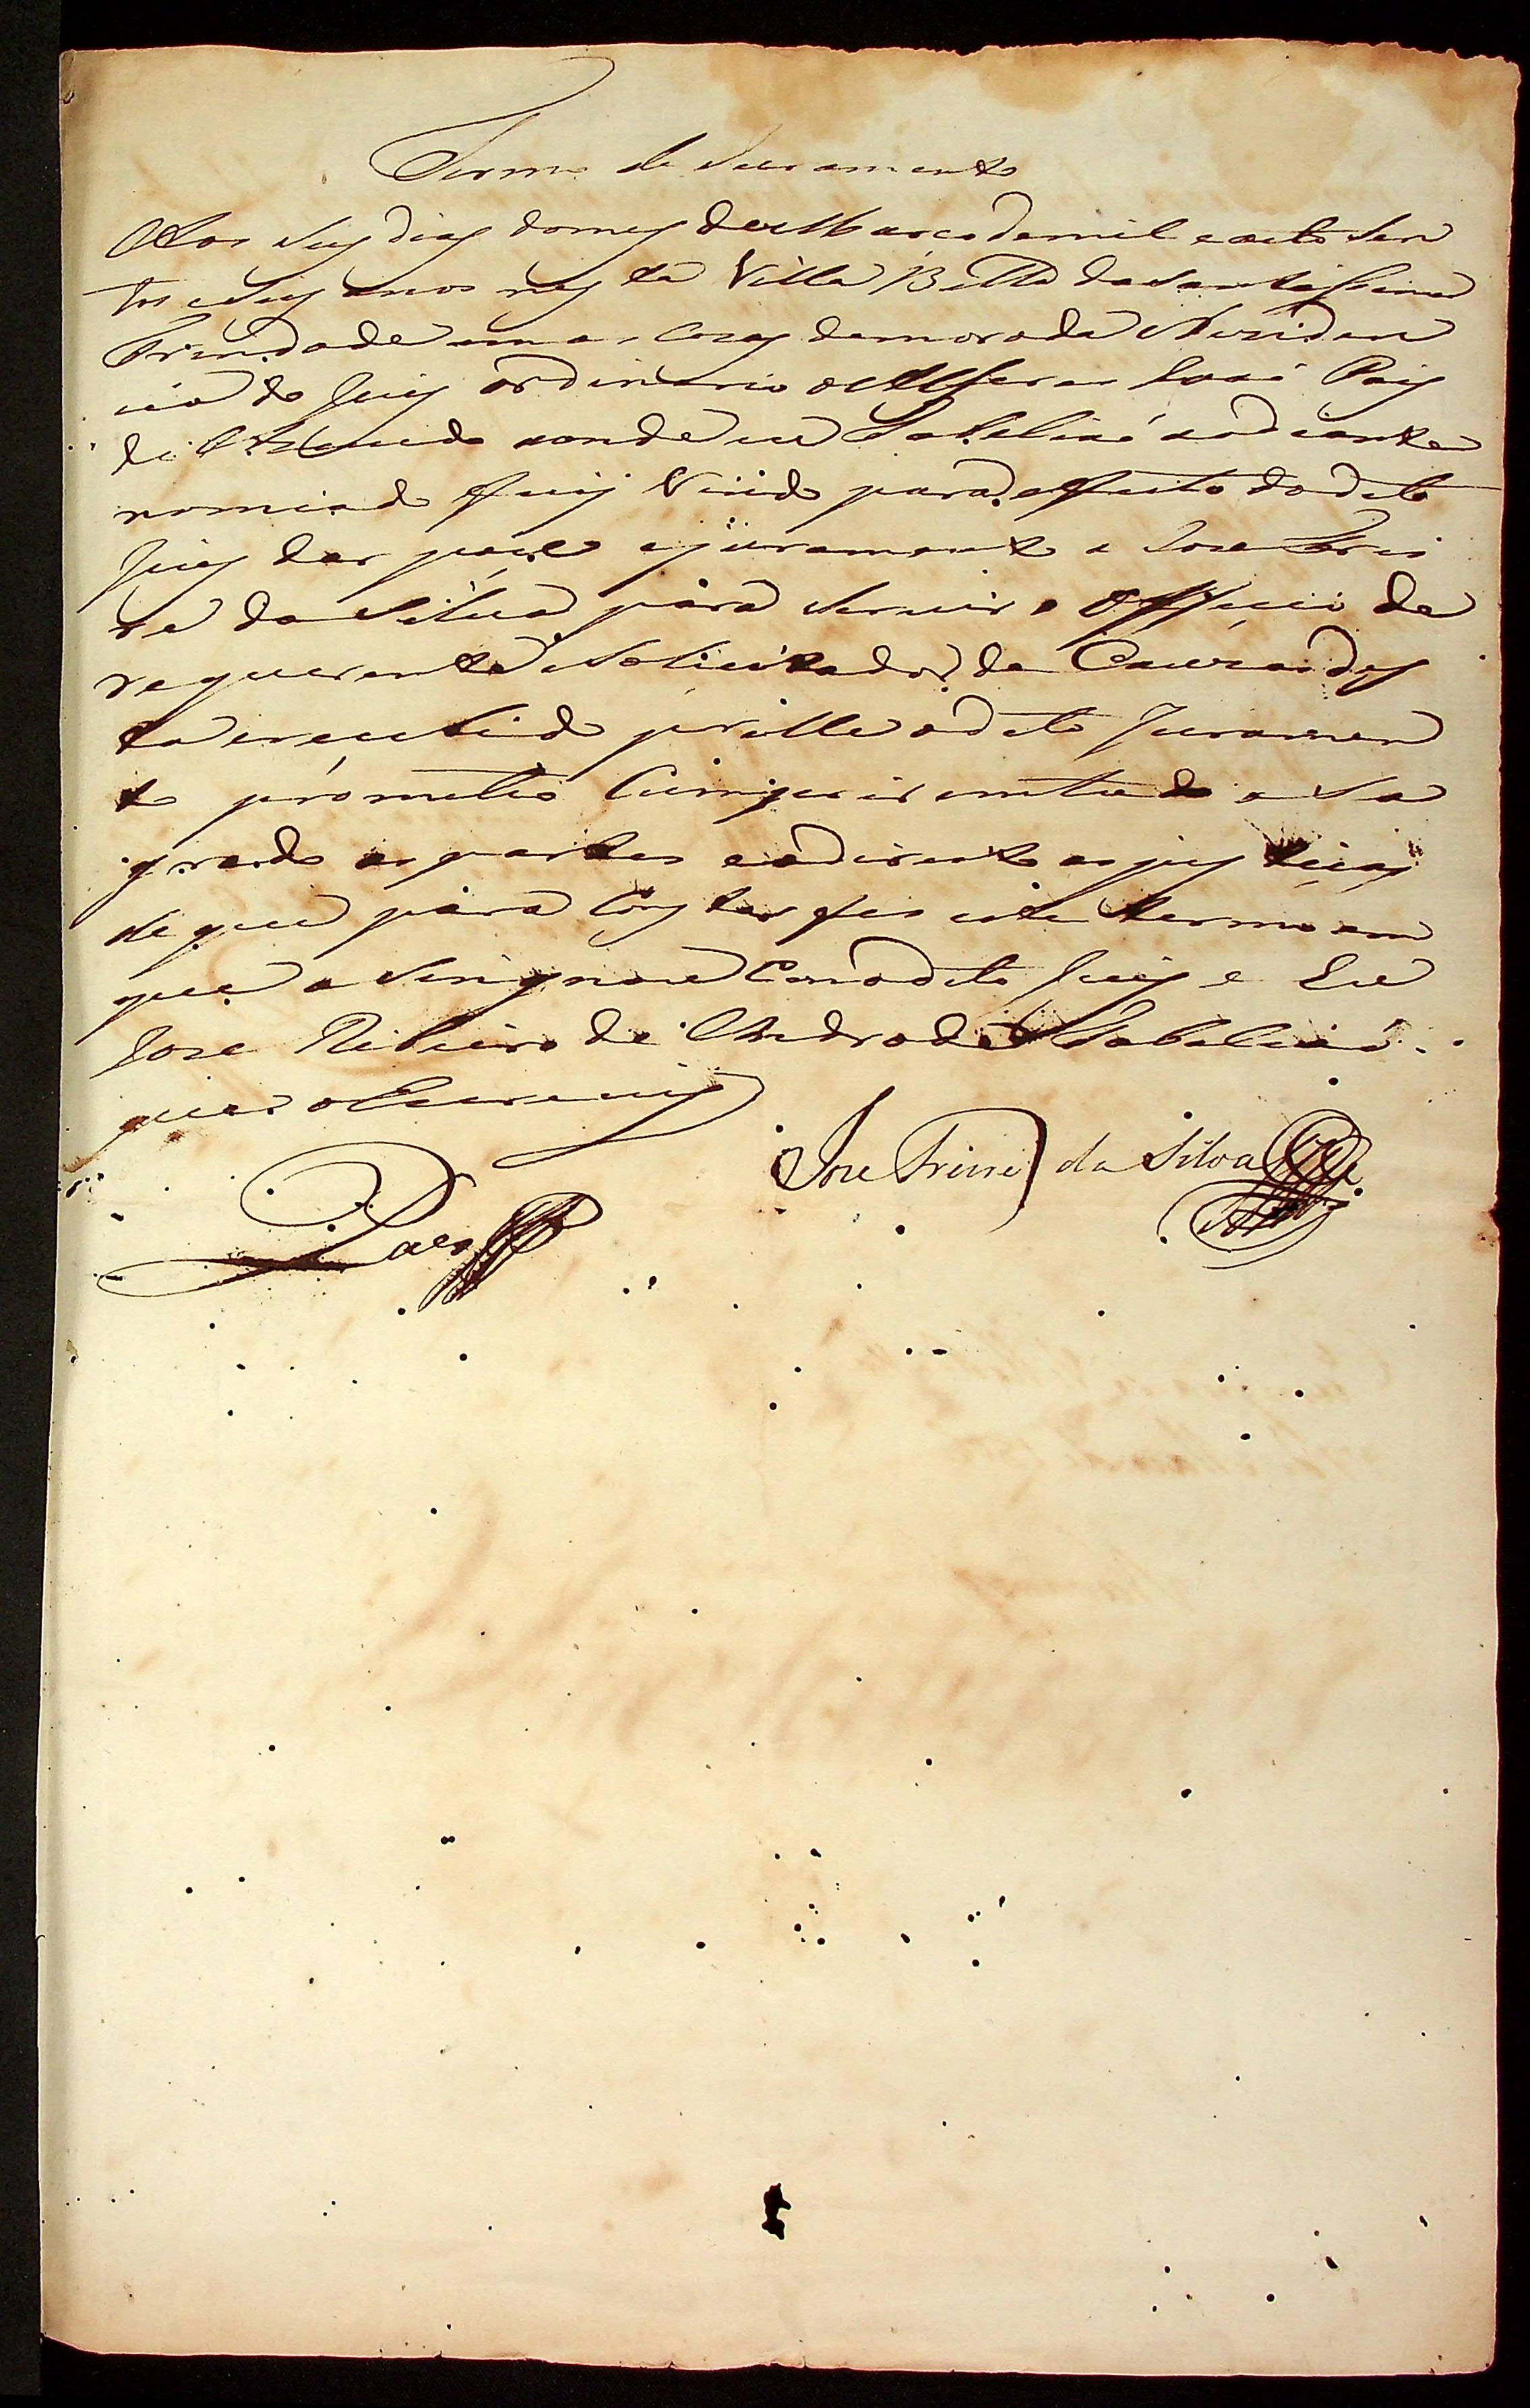 Termo de Juramento
Aos Seis dias domes deMarco demil e oito Sen
tos eSeis anos nesta Villa Bella daSantissima
Trindade em as Cazas demorada Reziden
cia do Juis ordinario o Alferes José Pais
de Azevedo aonde eu Tabeliaõ aodiante
nomiado fuij Vindo para oeffeito dodito
Juis dar posse ejuramento a Jose Frei
re da Silva para Servir o Officio de
requerente e Soliicitador de Cauzas des
ta e recebido por elle odito Juramen
to prometeo Cumprir emtudo o Sa
grado as partes e odireito as justicas
deque para Constar fes este termo em
que aSingnou Com odito Juis e Eu
Jose Ribeiro de Andrade Tabaliaõ
que o Escrevij
Jose Freire da Silva
Paes